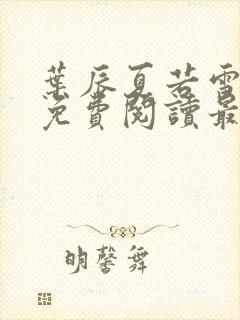 葉辰夏若雪
免費閱讀最
明馨舞